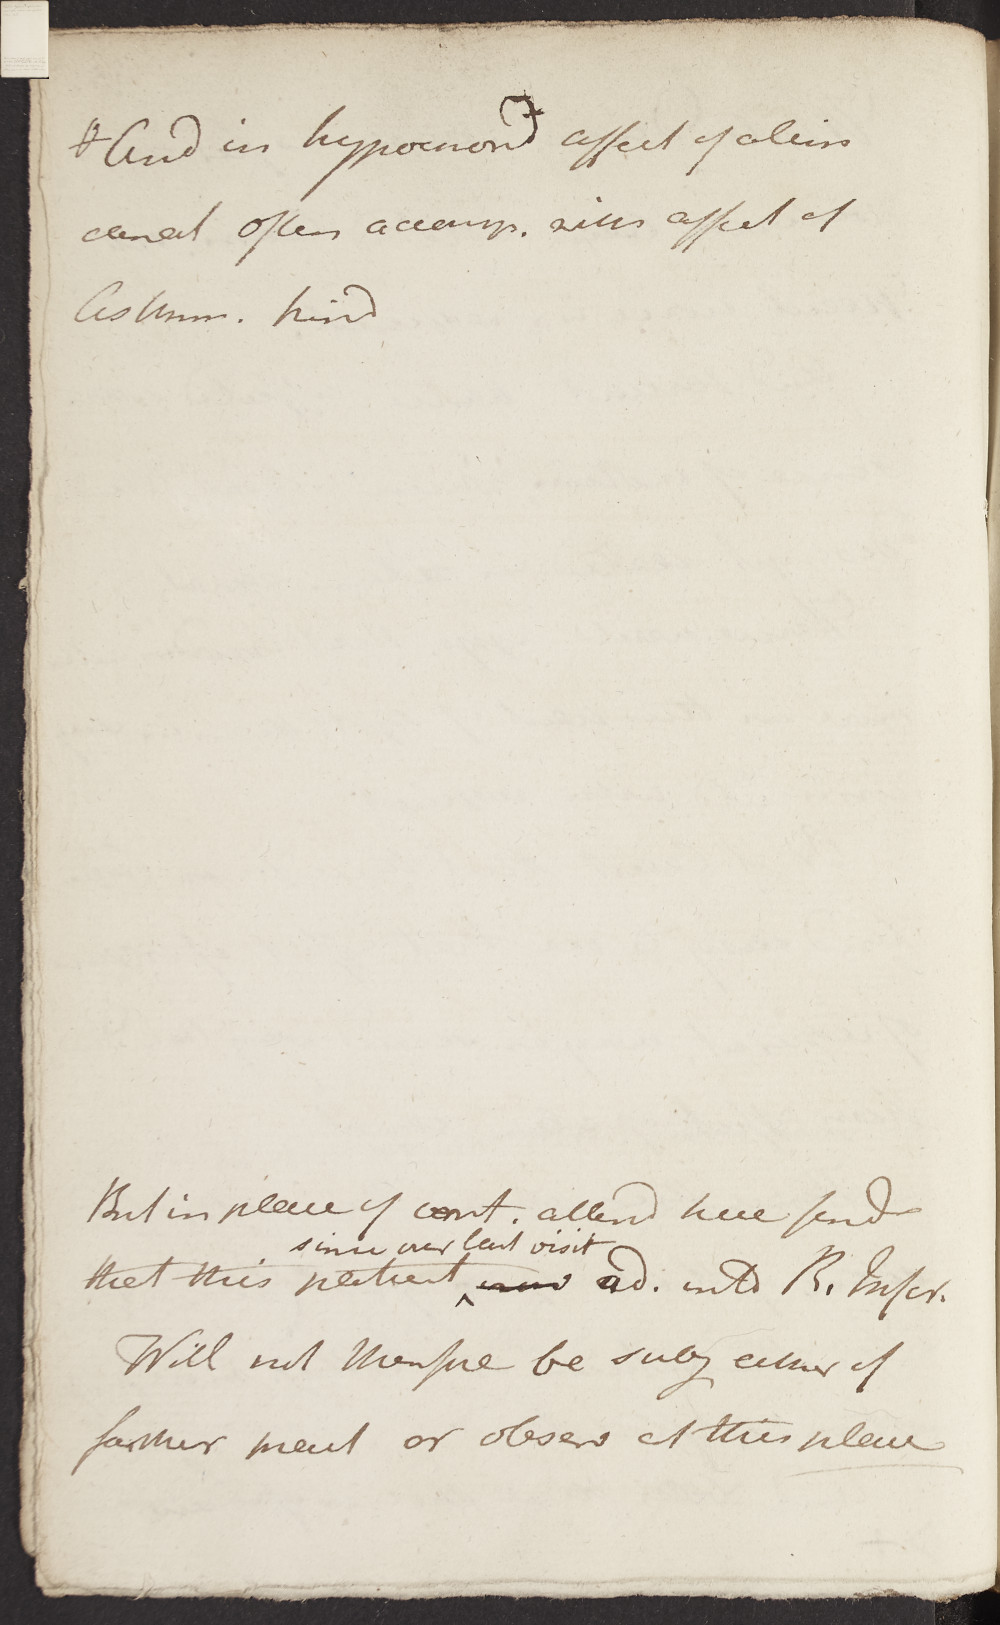 And in hypochond affect of alim
canal often accomp. with affect of
Asthm. kind
But in place of cont. attend here find
since our last visit
that this patient ad. into R. Infir.
Will not therefore be subj either of
farther pract or observ at this place